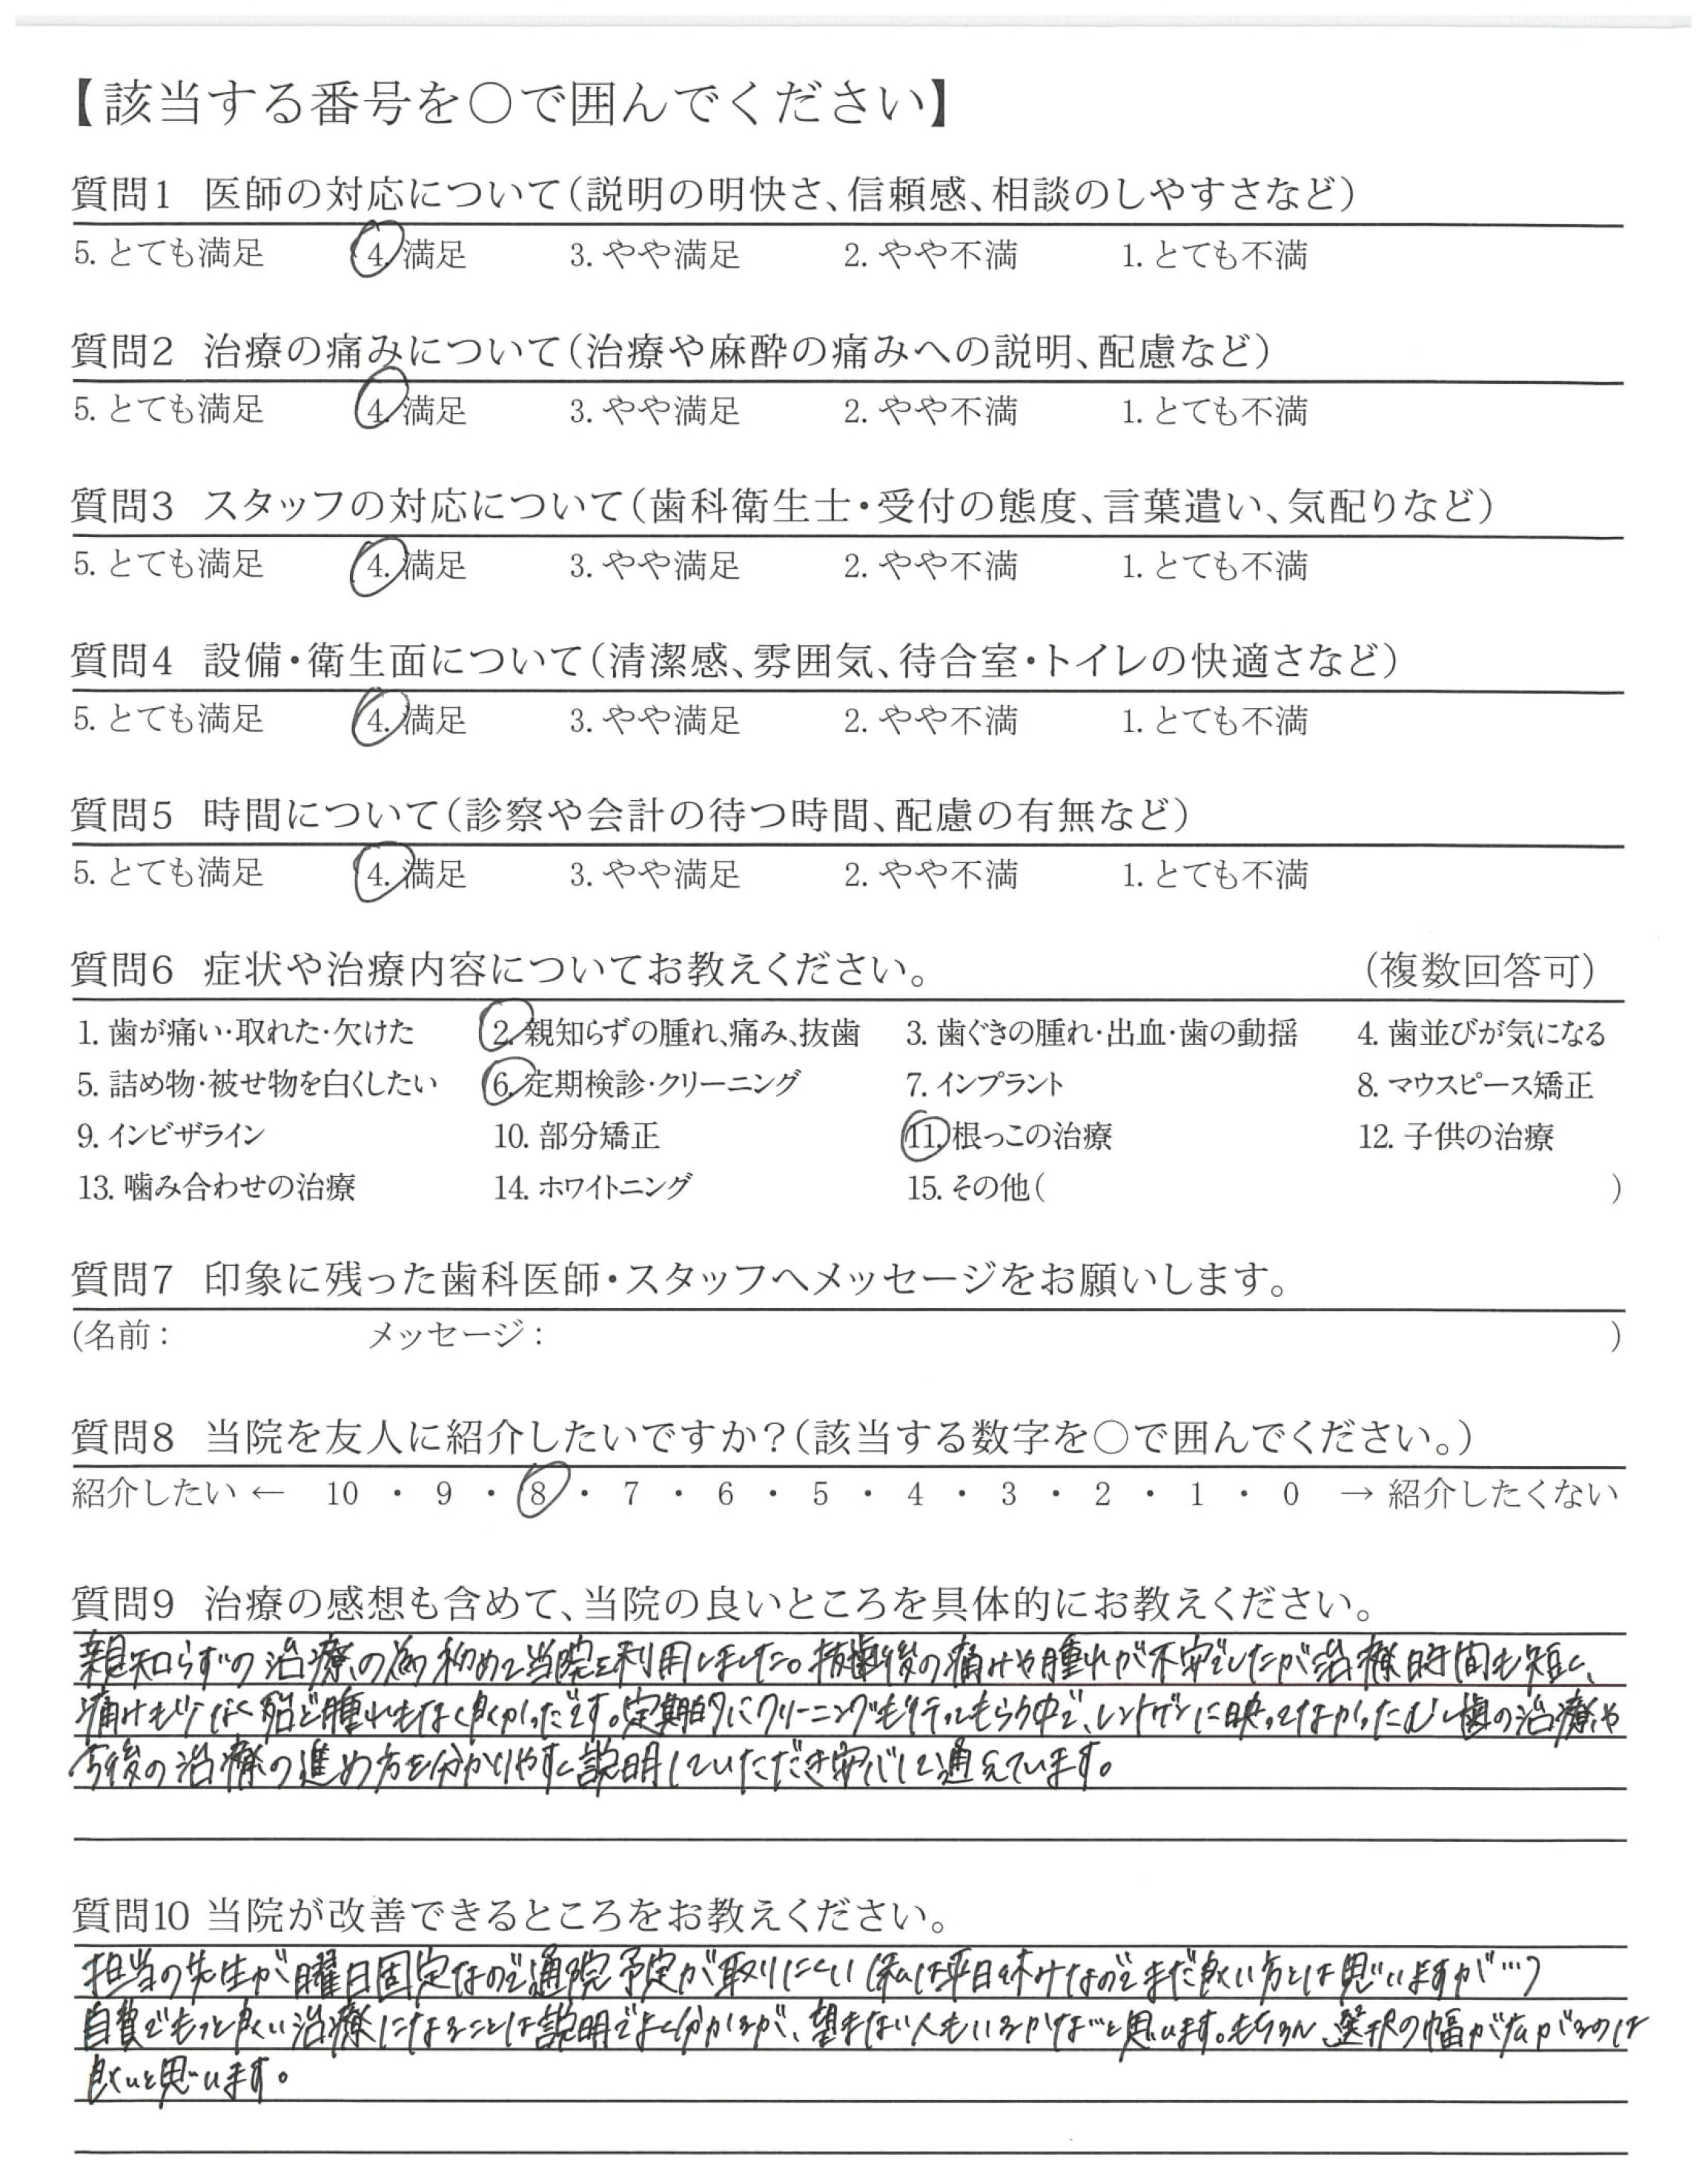 【該当する番号を○で囲んでください】
質問1 医師の対応について(説明の明快さ、信頼感、相談のしやすさなど)
5. とても満足 4. 満足 3. やや満足 2. やや不満 1. とても不満
質問2 治療の痛みについて(治療や麻酔の痛みへの説明、配慮など)
5. とても満足 4. 満足 3. やや満足 2. やや不満 1. とても不満
質問3 スタッフの対応について(歯科衛生士・受付の態度、言葉遣い、気配りなど)
5. とても満足 4. 満足 3. やや満足 2. やや不満 1. とても不満
質問4 設備・衛生面について(清潔感、雰囲気、待合室・トイレの快適さなど)
5. とても満足 4. 満足 3. やや満足 2. やや不満 1. とても不満
質問5 時間について(診察や会計の待つ時間、配慮の有無など)
5. とても満足 4. 満足 3. やや満足 2. やや不満 1. とても不満
質問6 症状や治療内容についてお教えください。 (複数回答可)
1. 歯が痛い・取れた・欠けた 2. 親知らずの腫れ、痛み、抜歯 3. 歯ぐきの腫れ・出血・歯の動揺 4. 歯並びが気になる
5. 詰め物・被せ物を白くしたい 6. 定期検診・クリーニング 7. インプラント 8. マウスピース矯正
9. インビザライン 10. 部分矯正 11. 根っこの治療 12. 子供の治療
13. 噛み合わせの治療 14. ホワイトニング 15. その他( )
質問7 印象に残った歯科医師・スタッフへメッセージをお願いします。
(名前: メッセージ: )
質問8 当院を友人に紹介したいですか?(該当する数字を○で囲んでください。)
紹介したい ← 10 ・ 9 ・ 8 ・ 7 ・ 6 ・ 5 ・ 4 ・ 3 ・ 2 ・ 1 ・ 0 → 紹介したくない
質問9 治療の感想も含めて、当院の良いところを具体的にお教えください。
親知らずの治療の為初めて当院を利用しました。抜歯後の痛みや腫れが不安でしたが治療時間も短く、
痛みも少なく殆ど腫れもなく良かったです。定期的にクリーニングも行ってもらう中で、レントゲンに映ってなかったむし歯の治療や
今後の治療の進め方を分かりやすく説明していただき安心して通えています。
質問10 当院が改善できるところをお教えください。
担当の先生が曜日固定なので通院予定が取りにくい(私は平日休みなのでまだ良い方とは思いますが…)
自費でもっと良い治療になることは説明でよく分かるが、望まない人もいるかな…と思います。もちろん、選択の幅が広がるのは
良いと思います。